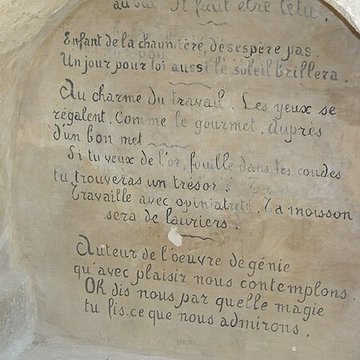 au but. Il faut être têtu.
Enfant de la chaumière, désespère pas.
Un jour pour toi aussi le soleil brillera.
Au charme du travail. Les yeux se
régalent. Comme le gourmet. dupres
d'un bon met
Si tu veux de l'or, fouille dans tes coudes
tu trouveras un trésor.
Travaille avec opiniatreté. Ta moisson
sera de lauriers.
Auteur de l'oeuvre de génie
qu'avec plaisir nous contemplons
Oh dis nous par quelle magie
tu fis. ce que nous admirons.